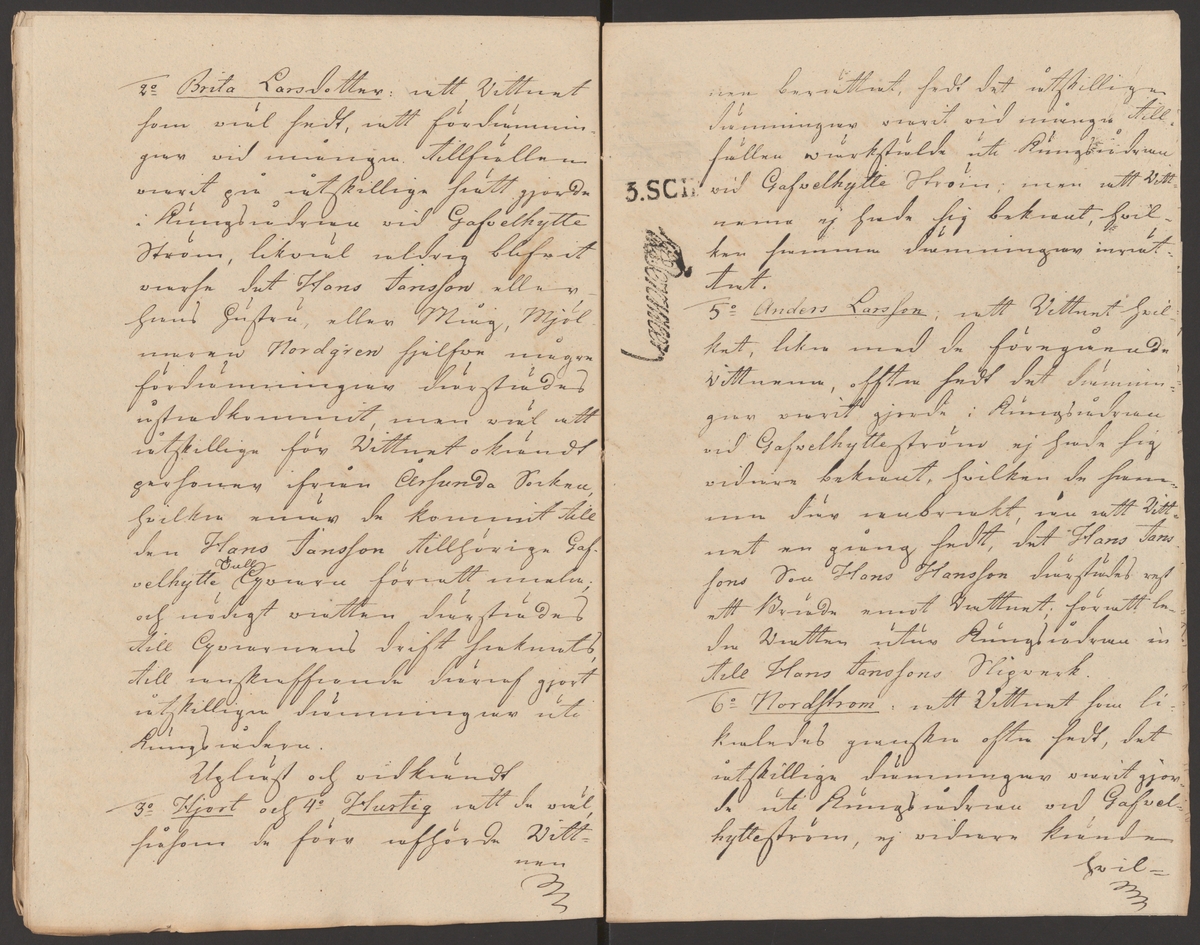 2o Brita Larsdotter: att Vittnet
som väl sedt, att fördämnin-
gar vid många tillfällen
varit på åtskillige sätt gjorde
i Kungsådran vid Gafvelhytte
Ström, likväl aldrig blifvit
varse det Hans Jansson eller
hans hustru, eller Måg, Mjöl-
naren Nordgren sjelfve några
fördämningar därstädes
åstadkommit, men väl att
åtskillige för Vittnet okiändt
personer ifrån Åshunda Socken,
hvilka enär de kommit till
den Hans Jansson tillhörige Gaf-
velhytte Tull Qvarn för att mala;
och nödigt vatten därstädes
till Qvarnens drift saknats,
till anskaffande däraf gjort
åtskillige dämningar uti
Kungsådern.
Upläst och vidkiändt
3o Hjort och 4o Hurtig att de väl,
såsom de förr afhörde Vitt-
nen
nen berättat, sedt det åtskillige
dämningar varit vid många till-
fällen värkstälde uti Kungsådran
vid Gafvelhytte Ström; men att Vitt-
nena ej hade sig bekant, hvil-
ken samma dämningar inrät-
tat.
3.SCH
5o Anders Larsson; att Vittnet hvil-
ket, lika med de föregående
Vittnena, offta sedt det dämnin-
gar varit gjorde i Kungsådran
vid Gafvelhytteström ej hade sig
vidare bekant, hvilken de sam-
ma där anbrakt, än att Vitt-
net en gång sedt, det Hans Jans-
sons Son Hans Hansson därstädes rest
ett Bräde emot Vattnet, för att le-
da Vatten utur Kungsådran in
till Hans Janssons Slipverk.
6o Nordstrom. att Vittnet som li-
kaledes ganska ofta sedt, det
åtskillige dämningar varit gjor-
de uti Kungsådran vid Gafvel-
hytteström, ej vidare kände
hvil-